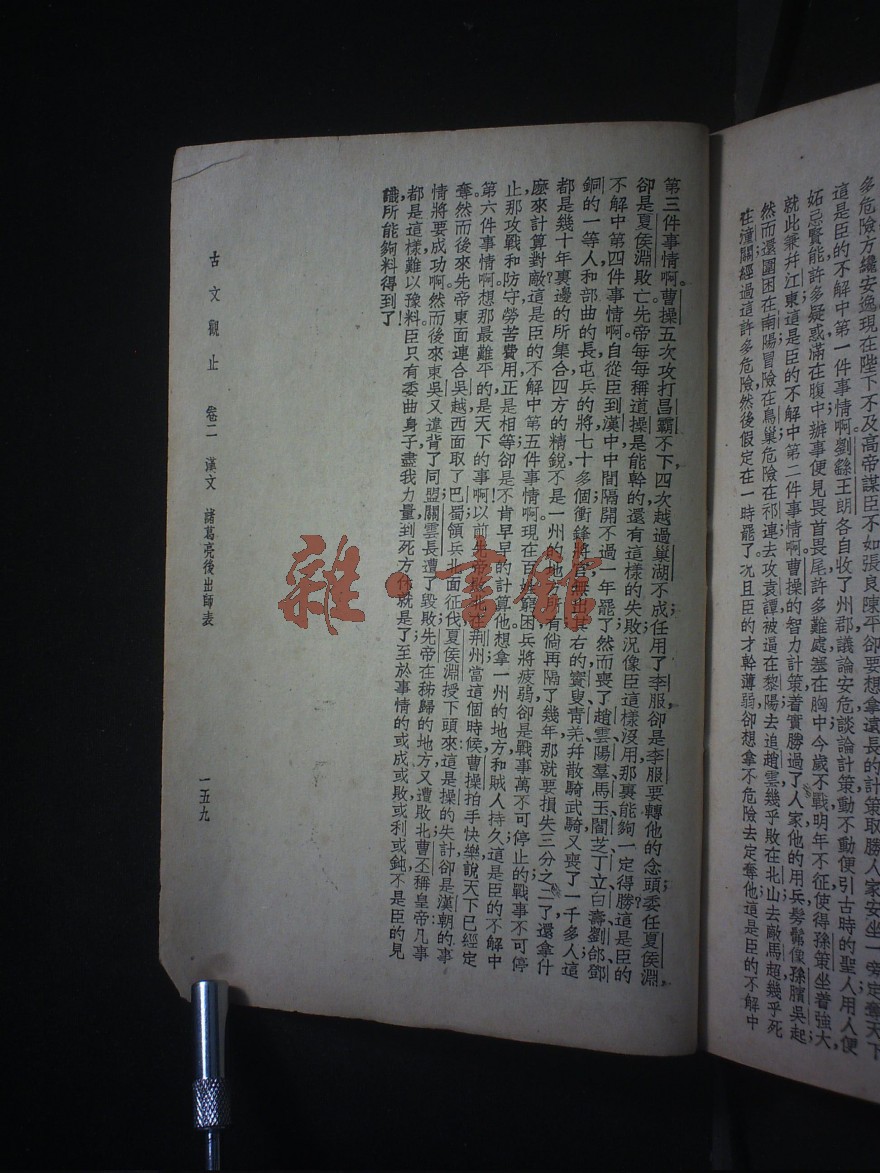 多危險方纔安逸現在陛下不及高帝謀臣不如張良陳平卻要想拿遠長的計策取勝人家安坐一旁定奪天下
這是臣的不解中第一件事情啊劉繇王朗各自收了州郡議論安危談論計策動不動便引古時的聖人用人便
妬忌賢能許多疑惑滿在腹中辦事便見畏首畏尾許多難處塞在胸中今歲不戰明年不征使得孫策坐着強大,
就此兼幷江東這是臣的不解中第二件事情啊曹操的智力計策着實勝過了人家他的用兵髣髴像孫臏吳起
然而還圍困在南陽冒險在烏巢危險在祁連去攻袁譚被逼在黎陽去追趙雲幾乎敗在北山去敵馬超幾乎死
在潼關經過這許多危險然後假定在一時罷了况且臣的才幹薄弱卻想拿不危險去定奪他這是臣的不解中
第三件事情啊。曹操五次攻打昌霸不下四次越過巢湖不成任用了李服卻是李服要轉他的念頭委任夏侯淵,
卻是夏侯淵敗亡先帝每每稱道操是能幹的還有這樣的失敗況像臣這樣沒用那裏能夠一定得勝這是臣的
不解中第四件事情啊。自從臣到漢中中間隔開不過一年罷了然而喪了趙雲陽羣馬玉閻芝丁立白壽劉郃鄧
銅的一等人和部曲的長屯兵的將七十多個衝鋒將官無出其右的竇叟青羌幷散騎武騎又喪了一千多人這
都是幾十年裏邊的所集合四方的精銳不是一州的地方所有倘再隔了幾年那就要損失三分之二了還拿什
麼來計算對敵這是臣的不解中第五件事情啊。現在百姓窮困兵將疲弱卻是戰事萬不可停止的戰事不可停
止那攻戰和防守勞苦費用正是相等卻是不肯早早的計算他想拿一州的地方和賊人持久這是臣的不解中
第六件事情啊。想那最難平的是天下的事啊以前先帝敗北在荆州當這個時候曹操拍手快樂說天下已經定
奪然而後來先帝東面連合吳越西面取了巴蜀領兵北面征伐夏侯淵授下頭來這是操的失計卻是漢朝的事
情將要成功啊然而後來東吳又違背了同盟關雲長遭了毀敗先帝在秭歸的地方又遭敗北曹丕稱皇帝凡事
都是這樣難以豫料臣只有委曲身子盡我力量到死方休就是了至於事情的或成或敗或利或鈍不是臣的見
識所能夠料得到了!
古文觀止 卷二 漢文 諸葛亮後出師表 一五九
雜·書館